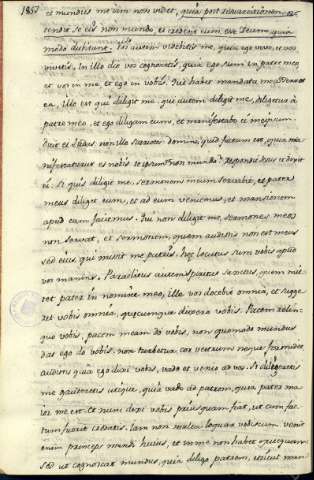 185
et mundus me iam non videt, quia post resurrectionem os-
tendit se eis non mundo, et credent eum esse Deum, quia
modo dubitant. Vos autem videbitis me, quia ego vivo, et vos
vivetis, in illo die vos cognocetis, quia ego sum in patre meo
et vos in me et ego in vobis. Qui habet mandata mea et servat
ea, ille est qui diligit me, qui autem diligit me, diligetur à
patre meo, et ego diligam eum, et manifestabo ei me ipsum.
Dicit ei Iudas non ille Scariotes domine, quid factum est, quia ma-
nifestaturus es nobis te ipsum et non mundo? Respondit Iesus et dixit
ei. Si quis diligit me, sermonem meum servabit, et pater
meus diliget eum, et ad eum veniemus, et mansionem
apud eum faciemus. Qui non diligit me, sermones meos
non servat, et sermonem, quem audistis non est meus
sed eius, qui misit me patris. Hęc locutus sum vobis apud
vos manens. Paraclitus autem spiritus sanctus, quem mit-
tet pater in nomine meo, ille vos docebit omnia, et sugge-
ret vobis omnia, quęcunque dixero vobis. Pacem relin-
quo vobis, pacem meam do vobis, non quomodo mundus
dat ego do vobis. non turbetur cor vestrum neque formidet
audistis quia ego dixi vobis, vado et venio ad vos. Si diligeretis
me gauderetis utique, quia vado ad patrem, quia pater ma-
ior me est. Et nunc dixi vobis priusquam fiat, ut cum fac-
tum fuerit credatis. Iam non multa loquar vobiscum venit
enim princeps mundi huius, et in me non habet quicquam
sed ut cognoscat mundus, quia diligo patrem, et sicut man-